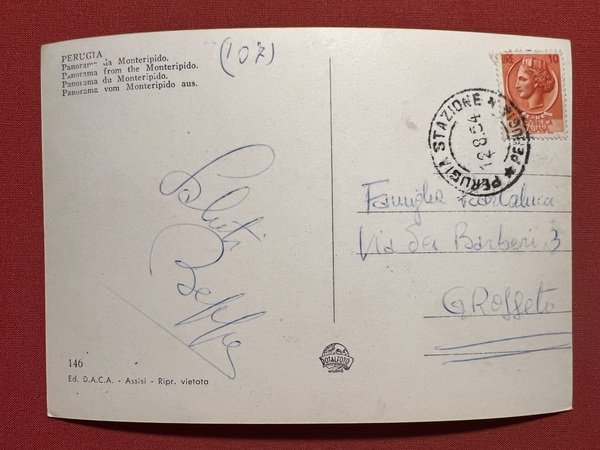 PERUGIA
Panorama da Monteripido.
Panorama from the Monteripido.
Panorama du Monteripido.
Panorama vom Monteripido aus.
(107)
LIRE 10
REPUBBLICA
ITALIANA
PERUGIA STAZIONE ★ PERUGIA ★
12.8.54
Saluti
Beppe
Famiglia
Via dei Barberi, 3
GROSSETO
146
Ed. D.A.C.A. - Assisi - Ripr. vietata
ROTALFOTO
MILANO